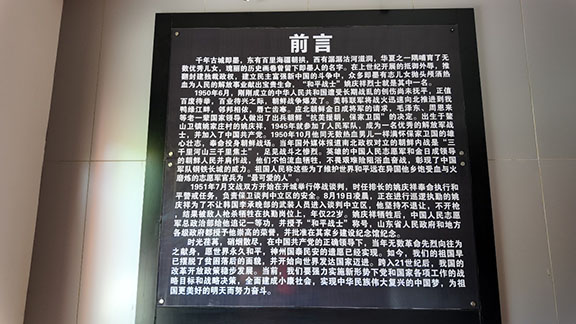 前言
千年古城即墨，东有百里海疆朝拱，西有潺潺沽河滋润，华夏之一隅哺育了无
数优秀儿女，瑰丽的历史画卷曾留下即墨人的名字。在上世纪开展的抵御外辱，推
翻封建独裁政权，建立民主富强新中国的斗争中，众多即墨有志儿女抛头颅洒热
血为人民的解放事业献出宝贵生命，"和平战士"姚庆祥烈士就是其中一名。
1950年6月，刚刚成立的中华人民共和国遭受长期战乱的创伤尚未抚平，正值
百废待举，百业待兴之际，朝鲜战争爆发了。美韩联军将战火迅速向北推进到我
鸭绿江畔，邻邦相依，唇亡齿寒。应北朝鲜金日成将军的请求，毛泽东、周恩来
等老一辈国家领导人做出了出兵朝鲜"抗美援朝，保家卫国"的决定。出生于鳌
山卫镇姚家庄村的姚庆祥，1945年就参加了人民军队，成为一名优秀的解放军战
士，并加入了中国共产党。1950年10月他同无数热血男儿一样满怀保家卫国的雄
心壮志，奉命投身朝鲜战场。当年国外媒体报道南北政权对立的朝鲜内战是"三
千里河山三千里焦土"，足见战斗之惨烈。英雄的中国人民志愿军和金日成领导
的朝鲜人民并肩作战，他们不怕流血牺牲，不畏艰难险阻浴血奋战，彰现了中国
军队钢铁长城的威力。祖国人民称这些为了维护世界和平远在异国他乡饱受血与火
磨炼的志愿军官兵为"最可爱的人"。
1951年7月交战双方开始在开城举行停战谈判，时任排长的姚庆祥奉命执行和
平警戒任务，负责保卫谈判中立区的安全。8月19日凌晨，正在进行巡逻执勤的姚
庆祥为了不让韩国李承晚部的武装人员进入谈判中立区，他坚持不退让，不开枪
，结果被敌人枪杀牺牲在执勤岗位上，年仅22岁。姚庆祥牺牲后，中国人民志愿
军总政治部给他追记一等功，并授予"和平战士"称号，山东省人民政府和地方
各级政府都授予他崇高的荣誉，并批准在其家乡建设纪念馆纪念。
时光荏苒，硝烟散尽，在中国共产党的正确领导下，当年无数革命先烈向往为
之献身，愿世界永久和平，神州国泰民安的遗愿已经实现。如今，我们的祖国早
已摆脱了贫困落后的面貌，并开始向世界发达国家迈进。跨入21世纪后，我国的
改革开放政策稳步发展。当前，我们要强力实施新形势下党和国家各项工作的战
略目标和战略决策，全面建成小康社会，实现中华民族伟大复兴的中国梦，为祖
国更美好的明天而努力奋斗。